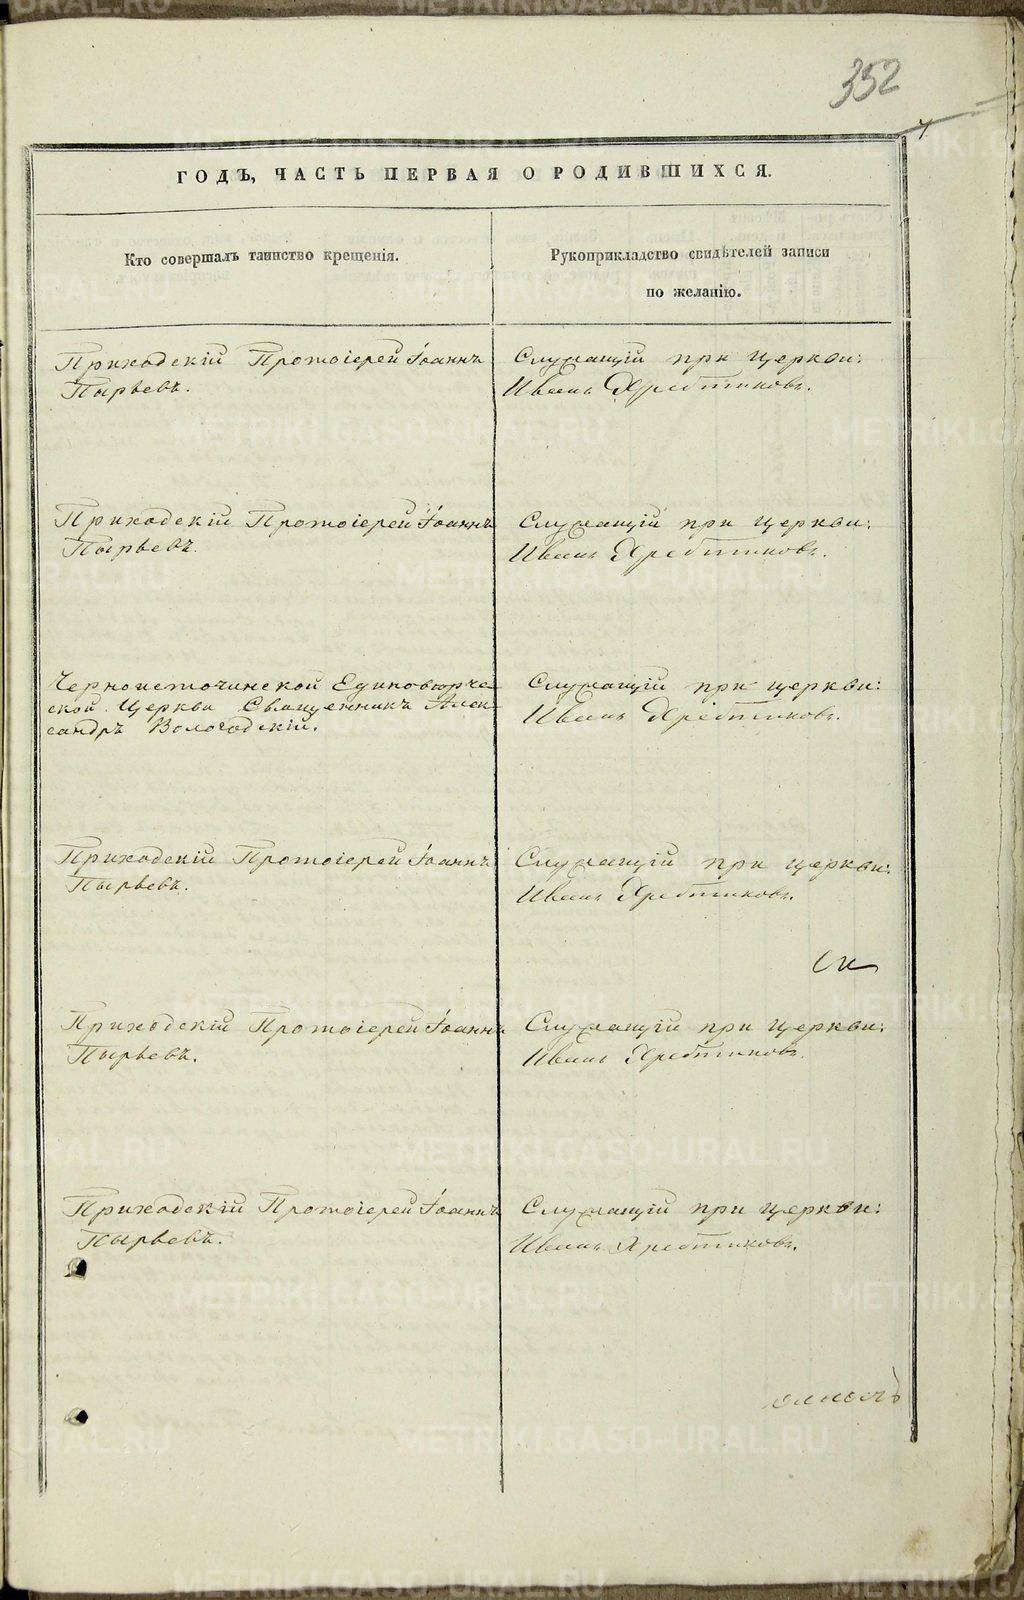 352
ГОДЪ, ЧАСТЬ ПЕРВАЯ О РОДИВШИХСЯ.
Кто совершалъ таинство крещенія.
Рукоприкладство свидѣтелей записи
по желанію.
Приходскій Протоіерей Іоаннъ
Пырьевъ.
Служащій при церкви:
Иванъ Хребтиковъ.
Приходскій Протоіерей Іоаннъ
Пырьевъ.
Служащій при церкви:
Иванъ Хребтиковъ.
Черноисточинской Единовѣрче
ской Церкви Священникъ Алек
сандръ Вологодскій.
Служащій при церкви:
Иванъ Хребтиковъ.
Приходскій Протоіерей Іоаннъ
Пырьевъ.
Служащій при церкви:
Иванъ Хребтиковъ.
Приходскій Протоіерей Іоаннъ
Пырьевъ.
Служащій при церкви:
Иванъ Хребтиковъ.
Приходскій Протоіерей Іоаннъ
Пырьевъ.
Служащій при церкви:
Иванъ Хребтиковъ.
METRIKI.GASO-URAL.RU